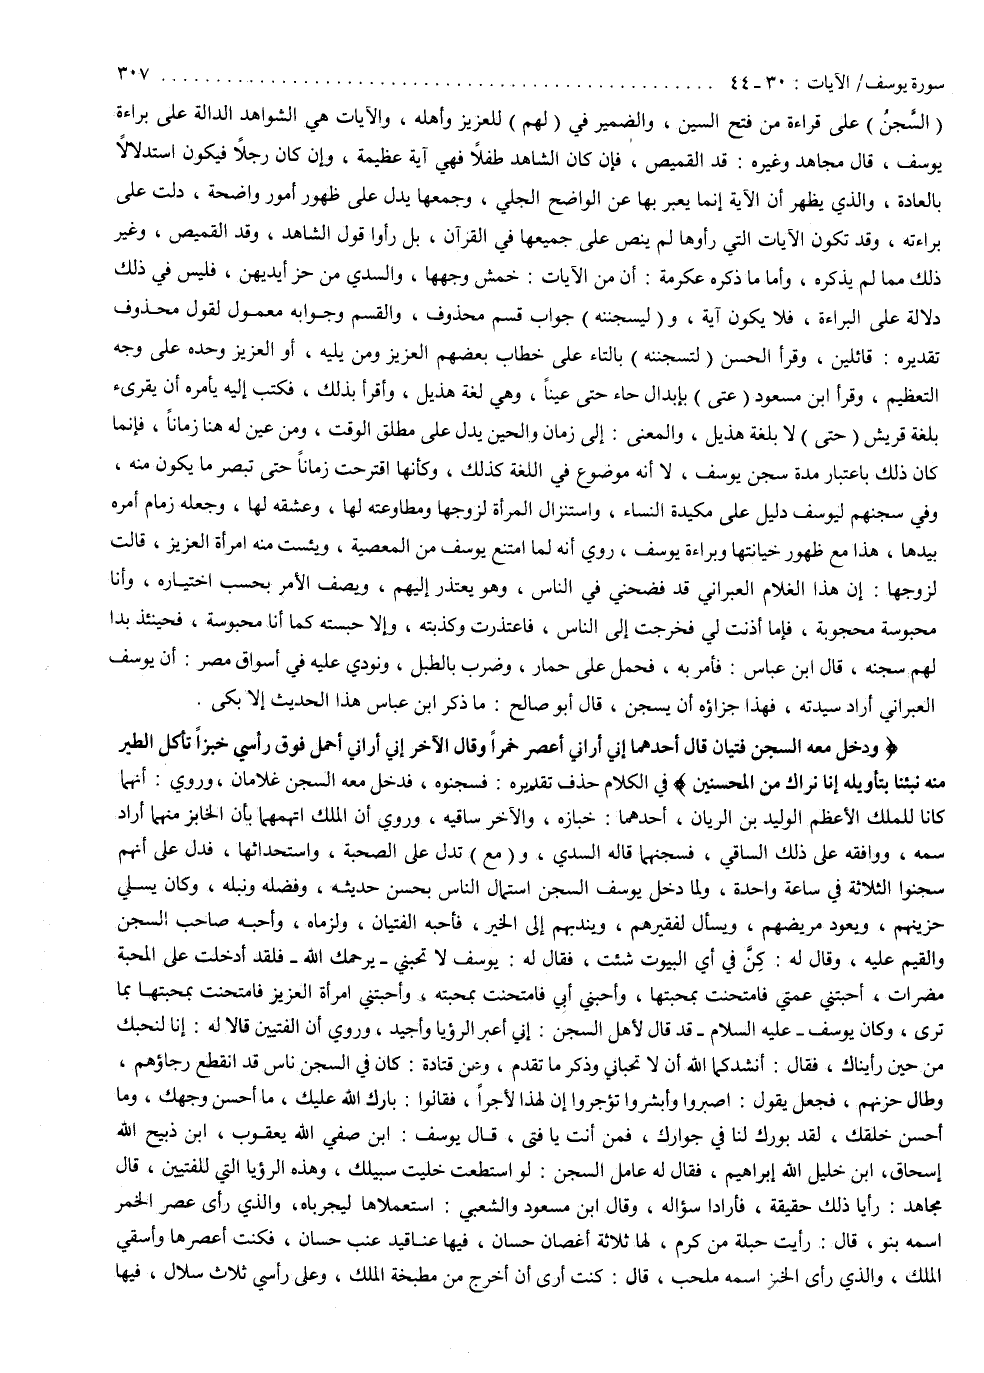 سورة يوسف/ الآيات : ٣٠ ـ ٤٤ ................................................ ٣٠٧
( السَّجنُ ) على قراءة من فتح السين ، والضمير في ( لهم ) للعزيز وأهله ، والآيات هي الشواهد الدالة على براءة
يوسف ، قال مجاهد وغيره : قد القميص ، فإن كان الشاهد طفلاً فهي آية عظيمة ، وإن كان رجلاً فيكون استدلالاً
بالعادة ، والذي يظهر أن الآية إنما يعبر بها عن الواضح الجلي ، وجمعها يدل على ظهور أمور واضحة ، دلت على
براءته ، وقد تكون الآيات التي رأوها لم ينص على جميعها في القرآن ، بل رأوا قول الشاهد ، وقد القميص ، وغير
ذلك مما لم يذكره ، وأما ما ذكره عكرمة : أن من الآيات : خمش وجهها ، والسدي من حز أيديهن ، فليس في ذلك
دلالة على البراءة ، فلا يكون آية ، و ( ليسجننه ) جواب قسم محذوف ، والقسم وجوابه معمول لقول محذوف
تقديره : قائلين ، وقرأ الحسن ( لتسجننه ) بالتاء على خطاب بعضهم العزيز ومن يليه ، أو العزيز وحده على وجه
التعظيم ، وقرأ ابن مسعود ( عتى ) بإبدال حاء حتى عيناً ، وهي لغة هذيل ، وأقرأ بذلك ، فكتب إليه يأمره أن يقرىء
بلغة قريش ( حتى ) لا بلغة هذيل ، والمعنى : إلى زمان والحين يدل على مطلق الوقت ، ومن عين له هنا زماناً ، فإنما
كان ذلك باعتبار مدة سجن يوسف ، لا أنه موضوع في اللغة كذلك ، وكأنها اقترحت زماناً حتى تبصر ما يكون منه ،
وفي سجنهم ليوسف دليل على مكيدة النساء ، واستنزال المرأة لزوجها ومطاوعته لها ، وعشقه لها ، وجعله زمام أمره
بيدها ، هذا مع ظهور خيانتها وبراءة يوسف ، روي أنه لما امتنع يوسف من المعصية ، ويئست منه امرأة العزيز ، قالت
لزوجها : إن هذا الغلام العبراني قد فضحني في الناس ، وهو يعتذر إليهم ، ويصف الأمر بحسب اختياره ، وأنا
محبوسة محجوبة ، فإما أذنت لي فخرجت إلى الناس ، فاعتذرت وكذبته ، وإلا حبسته كما أنا محبوسة ، فحينئذ بدا
لهم سجنه ، قال ابن عباس : فأمر به ، فحمل على حمار ، وضرب بالطبل ، ونودي عليه في أسواق مصر : أن يوسف
العبراني أراد سيدته ، فهذا جزاؤه أن يسجن ، قال أبو صالح : ما ذكر ابن عباس هذا الحديث إلا بكى .
﴿ ودخل معه السجن فتيان قال أحدهما إني أراني أعصر خمراً وقال الآخر إني أراني أحمل فوق رأسي خبزاً تأكل الطير
منه نبئنا بتأويله إنا نراك من المحسنين ﴾ في الكلام حذف تقديره : فسجنوه ، فدخل معه السجن غلامان ، وروي : أنهما
كانا للملك الأعظم الوليد بن الريان ، أحدهما : خبازه ، والآخر ساقيه ، وروي أن الملك اتهمهما بأن الخابز منهما أراد
سمه ، ووافقه على ذلك الساقي ، فسجنهما قاله السدي ، و ( مع ) تدل على الصحبة ، واستحداثها ، فدل على أنهم
سجنوا الثلاثة في ساعة واحدة ، ولما دخل يوسف السجن استمال الناس بحسن حديثه ، وفضله ونبله ، وكان يسلي
حزينهم ، ويعود مريضهم ، ويسأل لفقيرهم ، ويندبهم إلى الخير ، فأحبه الفتيان ، ولزماه ، وأحبه صاحب السجن
والقيم عليه ، وقال له : كِنَّ في أي البيوت شئت ، فقال له : يوسف لا تحبني ـ يرحمك الله ـ فلقد أدخلت على المحبة
مضرات ، أحبتني عمتي فامتحنت بمحبتها ، وأحبني أبي فامتحنت بمحبته ، وأحبتني امرأة العزيز فامتحنت بمحبتها بما
ترى ، وكان يوسف ـ عليه السلام ـ قد قال لأهل السجن : إني أعبر الرؤيا وأجيد ، وروي أن الفتيين قالا له : إنا لنحبك
من حين رأيناك ، فقال : أنشدكما الله أن لا تحباني وذكر ما تقدم ، وعن قتادة : كان في السجن ناس قد انقطع رجاؤهم ،
وطال حزنهم ، فجعل يقول : اصبروا وأبشروا تؤجروا إن لهذا لأجراً ، فقالوا : بارك الله عليك ، ما أحسن وجهك ، وما
أحسن خلقك ، لقد بورك لنا في جوارك ، فمن أنت يا فتى ، قال يوسف : ابن صفي الله يعقوب ، ابن ذبيح الله
إسحاق، ابن خليل الله إبراهيم ، فقال له عامل السجن : لو استطعت خليت سبيلك ، وهذه الرؤيا التي للفتيين ، قال
مجاهد : رأيا ذلك حقيقة ، فأرادا سؤاله ، وقال ابن مسعود والشعبي : استعملاها ليجرباه، والذي رأى عصر الخمر
اسمه بنو ، قال : رأيت حبلة من كرم ، لها ثلاثة أغصان حسان ، فيها عناقيد عنب حسان ، فكنت أعصرها وأسقي
الملك ، والذي رأى الخبز اسمه ملحب ، قال : كنت أرى أن أخرج من مطبخة الملك ، وعلى رأسي ثلاث سلال ، فيها